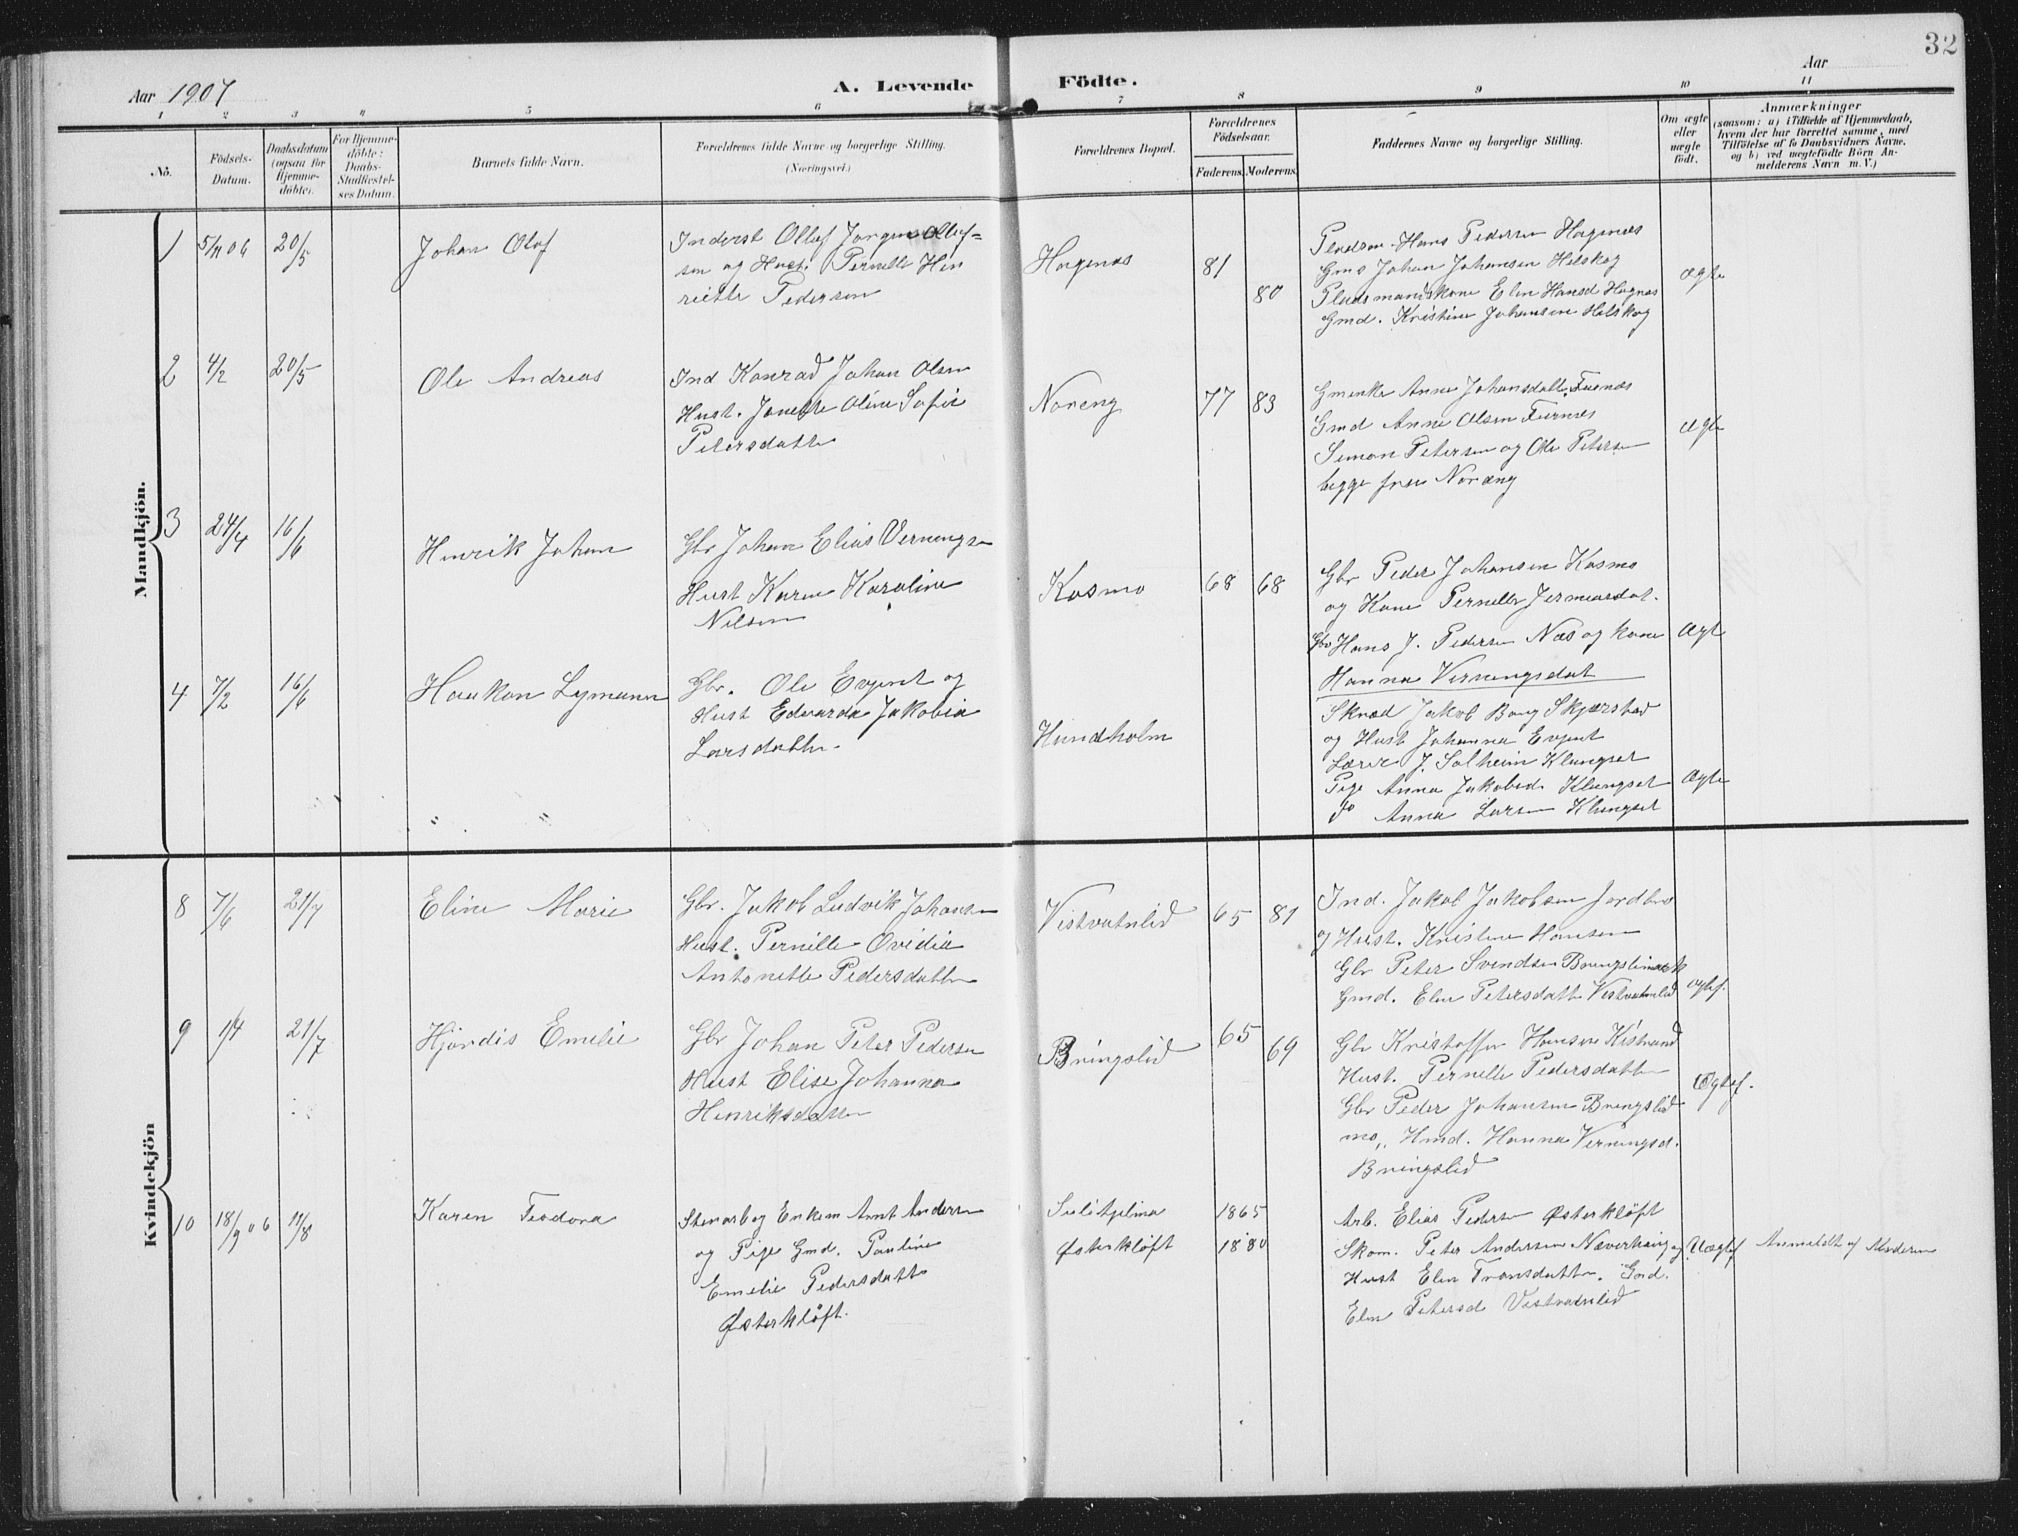 32
Aar 1907
A. Levende Födte.
Aar
1 2 3 4 5 6 7 8 9 10 11
No.
Födsels-Datum.
Daabsdatum (ogsaa for Hjemme-döbte).
For Hjemme-döbte: Daabs-Stadfestel-ses Datum.
Barnets fulde Navn.
Forældrenes fulde Navne og borgerlige Stilling. (Næringsvei.)
Forældrenes Bopæl.
Forældrenes Födselsaar.
Faderens. Moderens.
Faddernes Navne og borgerlige Stilling.
Om ægte eller uægte födt.
Anmærkninger
(saasom: a) i Tilfælde af Hjemmedaab, hvem der har forrettet samme, med Tilföielse af to Daabsvidners Navne, og b) ved uægtefödte Börn Anmelderens Navn m. V.)
Mandkjön.
1 5/11 06 20/5
Johan Olaf
Inderst Olluf Jørgen Olluf-
sen og Hust. Pernille Hen
riette Pedersen
Hagenæs
81
80
Pladsm. Hans Pedersen Hagenæs
Gms Johan Johansen Helskog
Pladsmandskone Elen Hansd Hagnæs
Gmd. Kristine Johansen Helskog
Ægte
2 4/2 20/5
Ole Andreas
Ind Konrad Johan Olsen
Hust. Janette Oline Sofie
Petersdatter
Noreng
77 83
Anne Johansdatt. Furnæs
Gmd Anne Olsen Furnes
Simon Petersen og Ole Petersen
begge fra Noræng
Ægte
3 24/4 16/6
Henrik Johan
Gbr Johan Elias Verningsen
Hust Karen Karoline
Nilsen
Kosmo
68 68
Gbr Peder Johansen Kosmo
og Kone Pernille Jermiasdat.
Gbr Hans J. Pedersen Næs og kone
Hanna Verningsdat
Ægt
4 7/2 16/6
Haakon Lymann
Gbr. Ole Evjent og
Hust Edvarda Jakobia
Larsdatter.
Hundholm
Jakob Bang Skjærstad
og Hust Johanna Evjent
Lærer J. Solheim Klungset
Pige Anna Jakobsd. Klungset
do Anna Larsen Klungset
Ægte
" "
Kvindekjön
8 7/6 21/7
Eline Marie
Gbr. Jakob Ludvik Johansen
Hust. Pernille Ovidia
Antonette Pedersdatter
Vestvatnlid
65 81
Ind. Jakob Jakobsen Jordbro
og Hust. Kristine Hansen
Gbr Peter Svendsen Bringslimark
Gmd. Elen Petersdatt Vestvatnlid
Ægtef.
9 1/4 21/7
Hjørdis Emelie
Gbr Johan Peter Pedersen
Hust Elise Johanna
Henriksdatter
Bringslid
65
69
Gbr Kristoffer Hansen Kistrand
Hust. Pernille Pedersdatter
Gbr Peder Johansen Bringslid
mo,, Hmd. Hanna Verningsd.
Bringslid
Ægtef.
10 18/9 06 11/8
Karen Teodora
Stenarb og Enkem Arnt Andersen
og Pige Gmd. Pauline
Emelie Pedersdatter
Østerkløft.
Sulitjelma
Østerkløft
1865
1880
Arb. Elias Pedersen Østerkløft
Skom. Peter Andersen Næverhaug og
Hust Elen Fransdatter. Gmd.
Elen Petersd Vestvatnlid
Uægtef
Anmeldt af Moderen